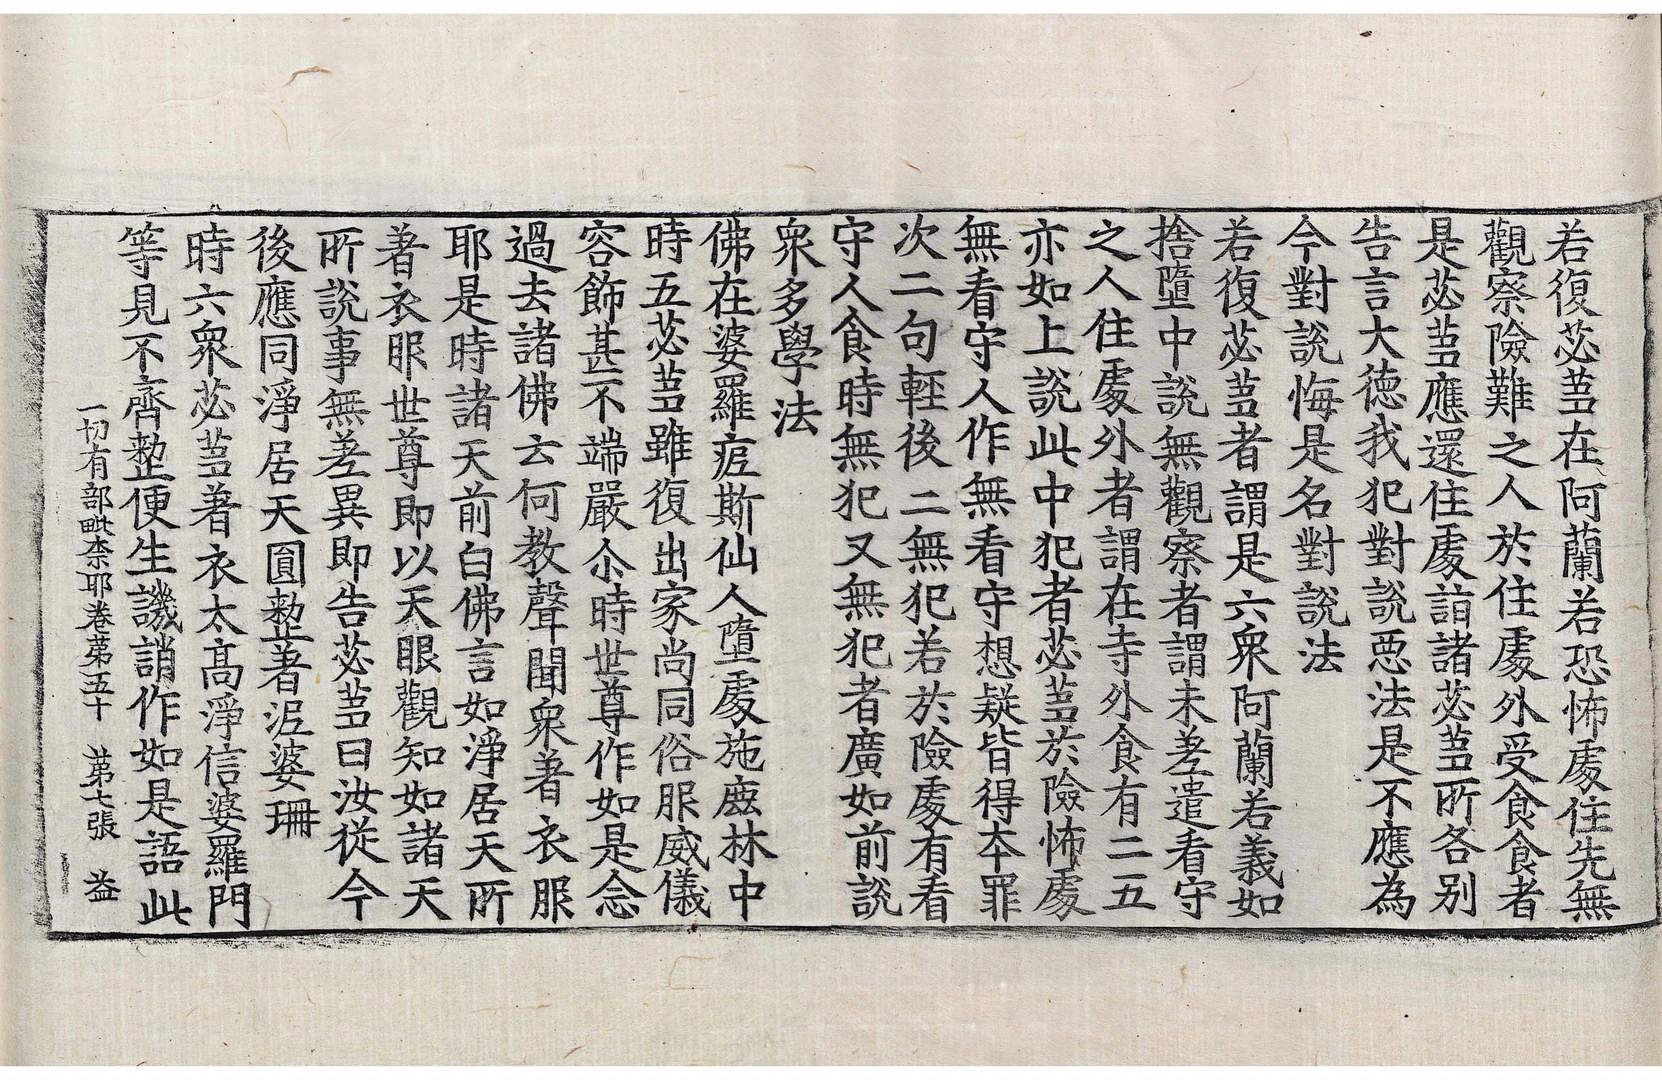 若復苾蒭在阿蘭若恐怖處住先無
觀察險難之人於住處外受食食者
是苾蒭應還住處詣諸苾蒭所各别
告言大德我犯對說惡法是不應為
今對說悔是名對說法
若復苾蒭者謂是六衆阿蘭若義如
捨墮中說無觀察者謂未差遣看守
之人住處外者謂在寺外食有二五
亦如上說此中犯者苾蒭於險怖處
無看守人作無看守想疑皆得本罪
次二句輕後二無犯若於險處有看
守人食時無犯又無犯者廣如前說
衆多學法
佛在婆羅痆斯仙人墮處施鹿林中
時五苾蒭雖復出家尚同俗服威儀
容飾甚不端嚴尒時世尊作如是念
過去諸佛云何教聲聞衆著衣服
耶是時諸天前白佛言如淨居天所
著衣服世尊即以天眼觀知如諸天
所說事無差異即告苾蒭曰汝從今
後應同淨居天圓整著泥婆珊
時六衆苾蒭著衣太高淨信婆羅門
等見不齊整便生譏誚作如是語此
一切有部毗柰耶卷第五十　第七張　益